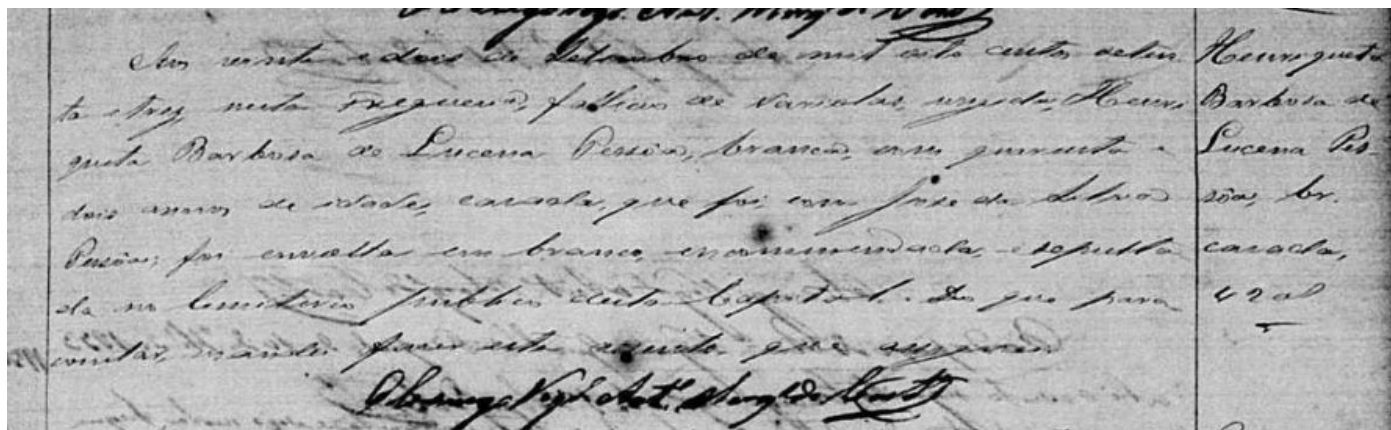 Aos vinte e dois de Setembro de mil oito centos seten
ta e trez, nesta Freguesia, falleceo de variolas, ungida, Henri
queta Barbosa de Lucena Pessôa, branca, com quarenta e
dois annos de idade, casada, que foi com José da Silva
Pessôa; foi envolta em branco, encommendada, e sepulta
da no Cemiterio publico desta Capital. Do que para
constar, mandei fazer este assento, que assignei.
O Conego Vigr.º Ant.º
Henriqueta
Barbosa de
Lucena Pes-
sôa, br.
casada,
42 a